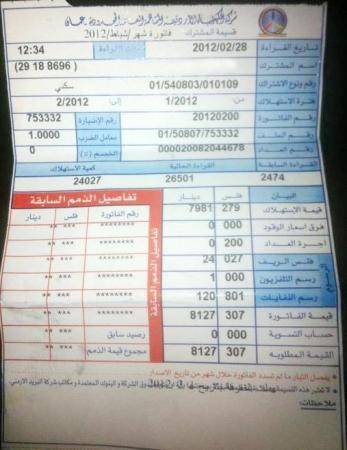 شركة الكهرباء الأردنية المساهمة العامة المحدودة عمان
قسيمة المشترك فاتورة شهر /شباط/2012
تاريخ القراءة 2012/02/28 12:34
اسم المشترك (29 18 8696 )
رقم ونوع الاشتراك 01/540803/010109 سكني
فترة الاستهلاك من 1/2012 إلى 2/2012
رقم الفاتورة 20120200 رقم الإضبارة 753332
رقم الملف 01/50807/753332 معامل الضرب 1.0000
رقم العداد 000020082044678 الخصم (%) 0
القراءة السابقة القراءة الحالية كمية الاستهلاك
2474 26501 24027
البيان فلس دينار تفاصيل الذمم السابقة
قيمة الإستهلاك 279 7981 رقم الفاتورة فلس دينار
فرق اسعار الوقود 000 0 ******** *** **
اجرة العداد 200 0 ******** *** **
فلس الريف 027 24 ******** *** **
رسم التلفزيون 000 1 ******** *** **
رسم النفايات 801 120 ******** *** **
قيمة الفاتورة 307 8127 ******** *** **
حساب التسوية 000 0 رصيد سابق *** **
القيمة المطلوبه 307 8127 مجموع قيمة الذمم *** **
تفاصيل الذمم السابقة
الرسوم
يفصل التيار ما لم تسدد الفاتورة خلال شهر من تاريخ الاصدار
لا تعتبر هذه القسيمة الشركة و البنوك المعتمدة و مكاتب شركة البريد الاردني.
ملاحظات: